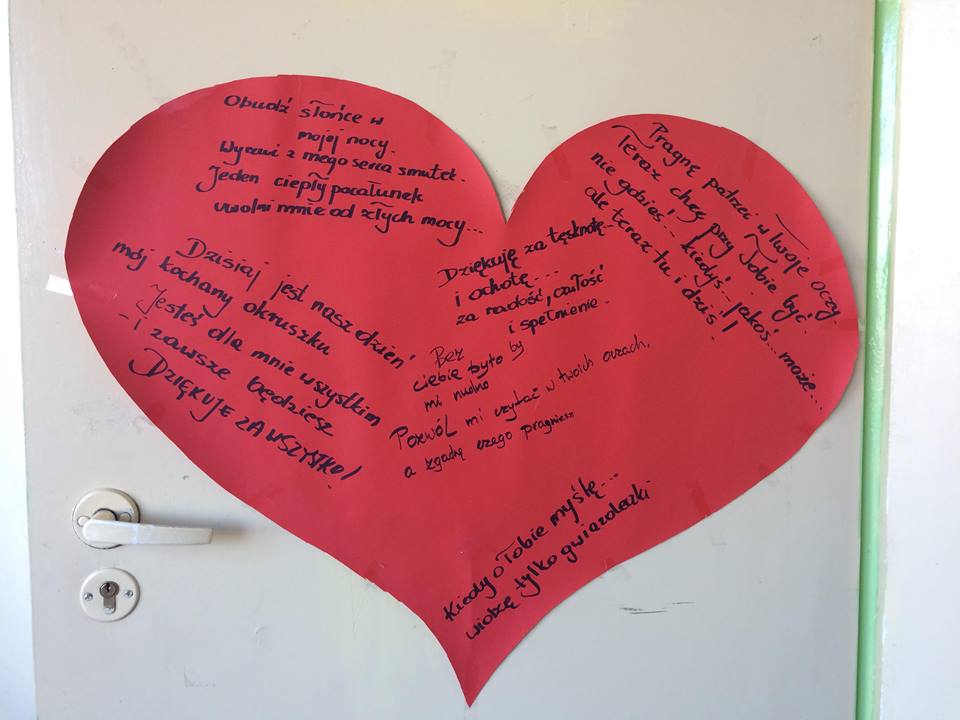 Obudź słońce w
mojej nocy.
Wyrzuć z mego serca smutek.
Jeden ciepły pocałunek
uwolni mnie od złych mocy...
Dzisiaj jest nasz dzień
mój kochany okruszku
Jesteś dla mnie wszystkim
- i zawsze będziesz
DZIĘKUJE ZA WSZYSTKO!
Dziękuję za tęsknotę
i ochotę....
za radość, czułość
i spełnienie.
Bez
ciebie było by
mi nudno
Pozwól mi czytać w twoich oczach,
a zgadnę czego pragniesz
Pragnę patrzeć w Twoje oczy.
Teraz chcę przy Tobie być.
nie gdzieś... kiedyś.. jakoś... może...
ale teraz tu i dziś!!
Kiedy o Tobie myślę...
widzę tylko gwiazdeczki